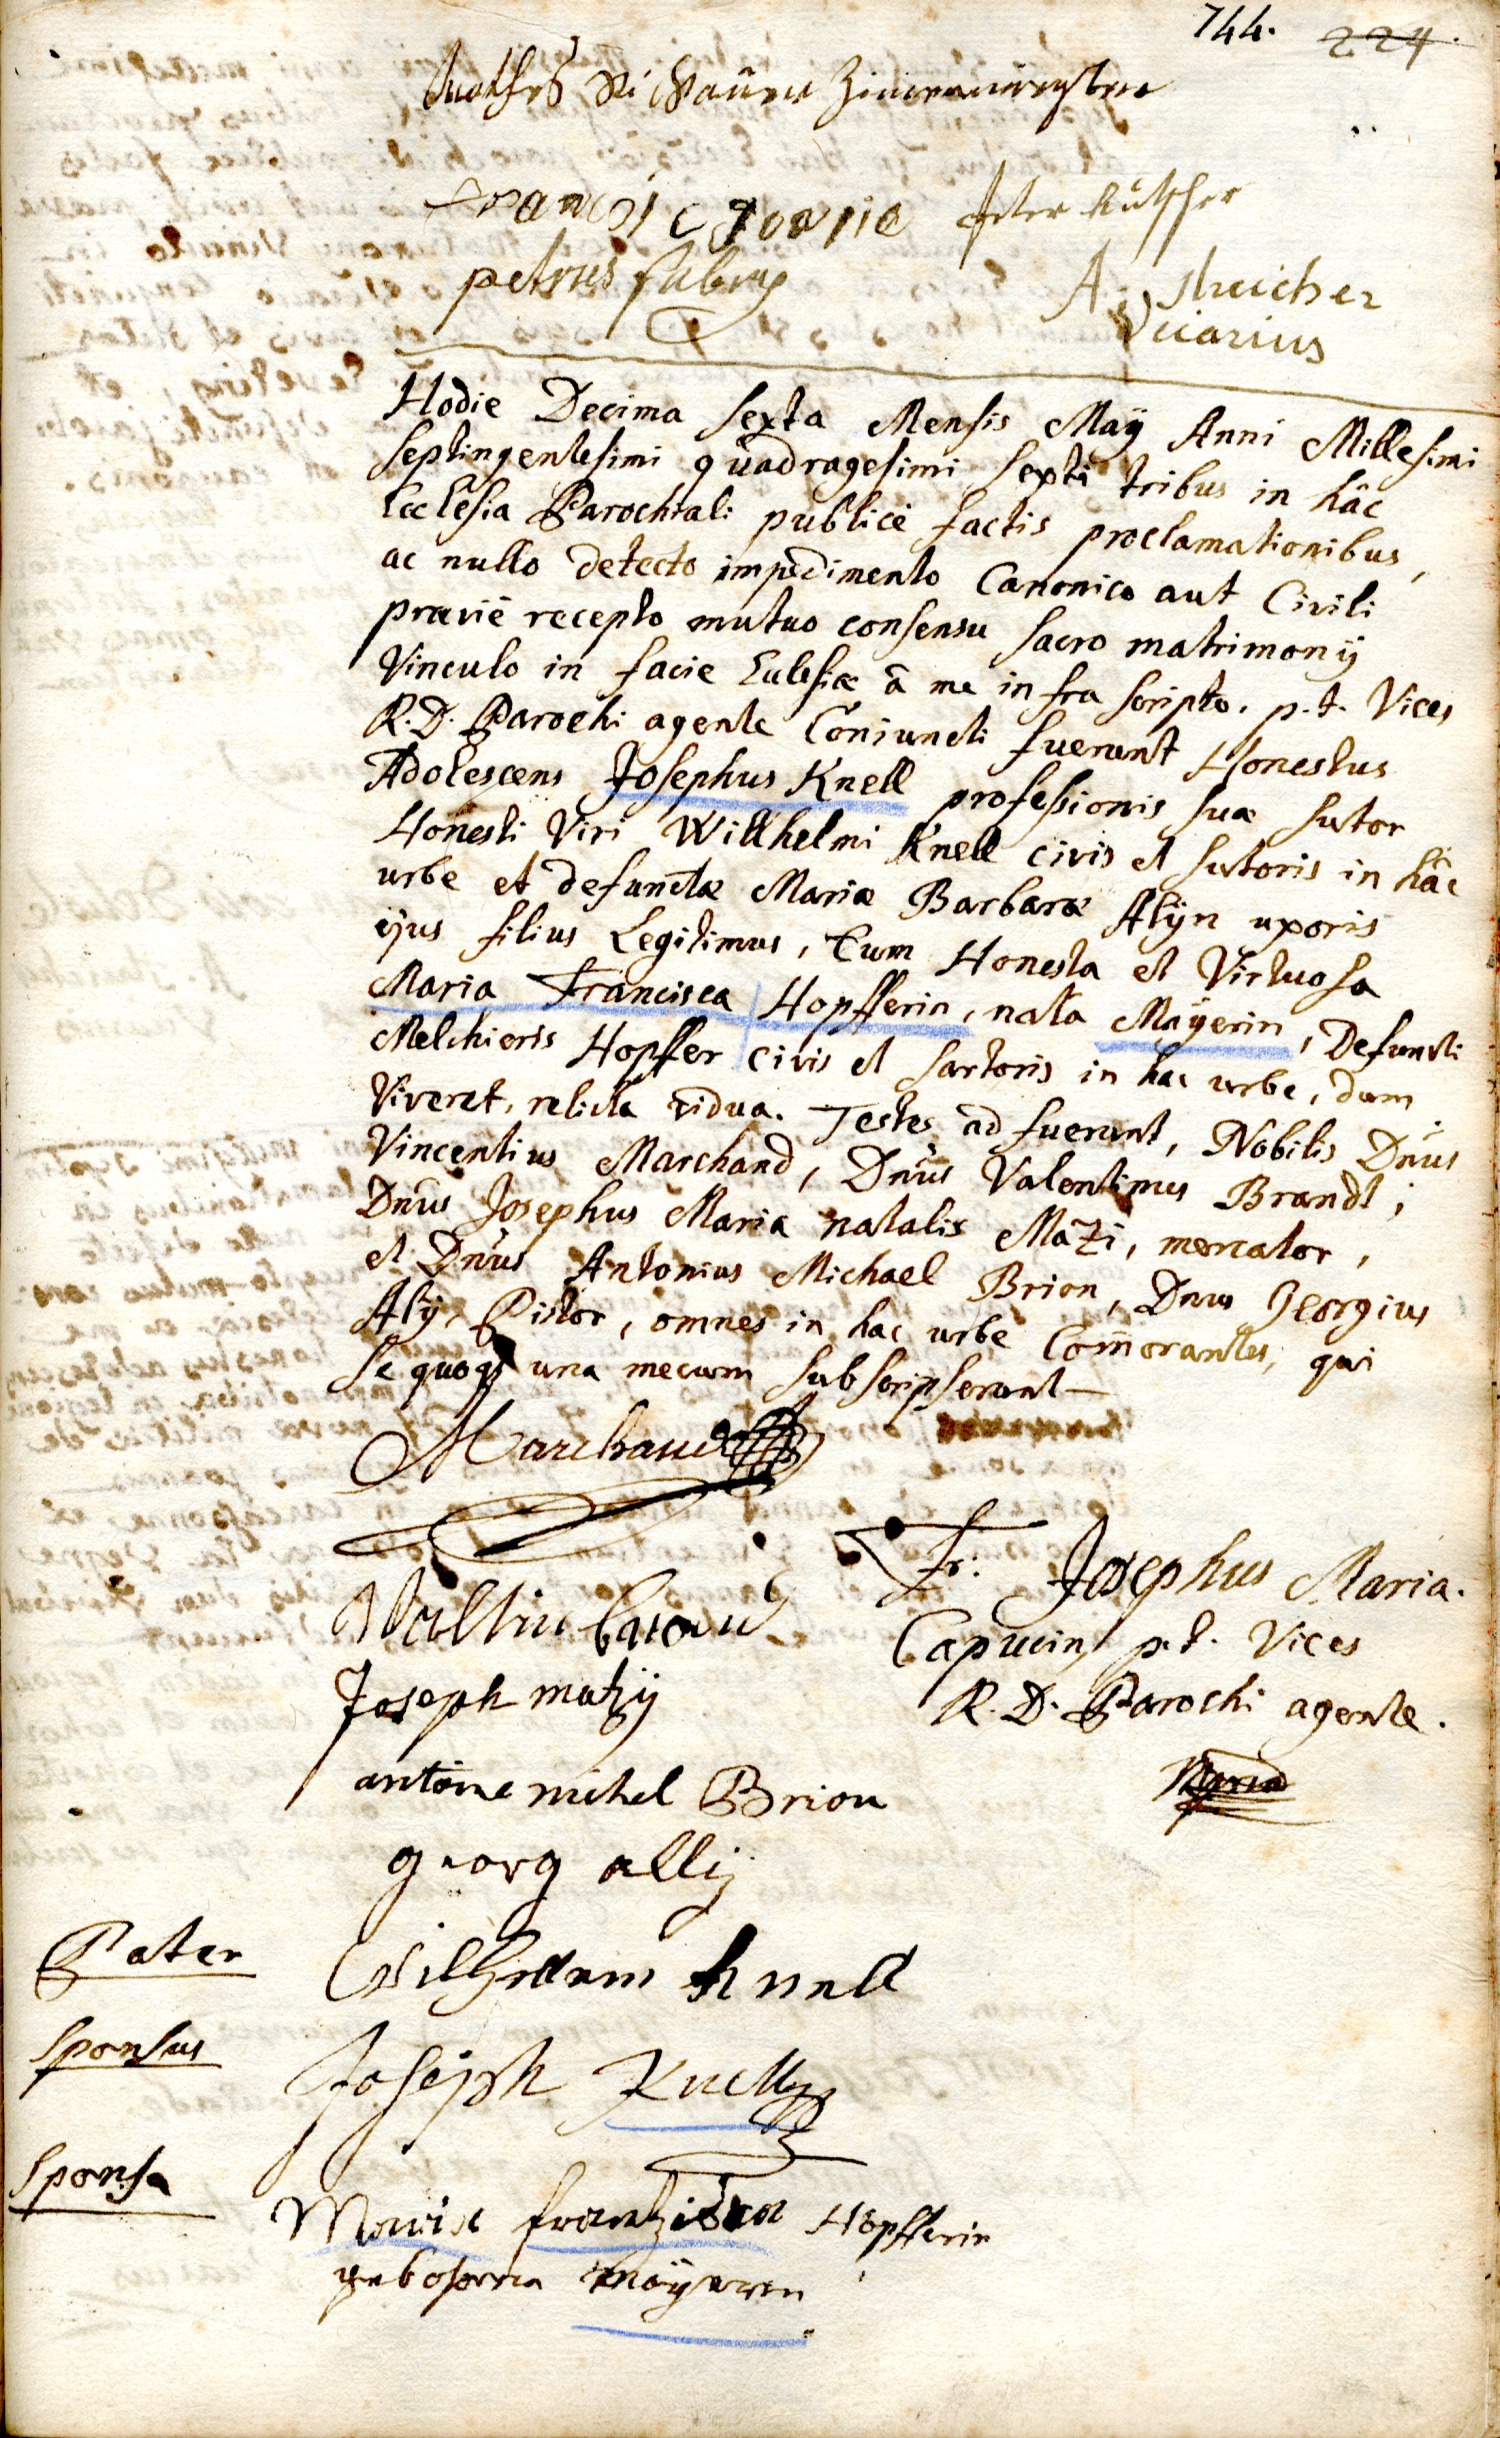 744. 224.
Francisc
petrus fabry
A: Streicher
Vicarius
Hodie Decima sexta Mensis Maÿ Anni Millesimi
septingentesimi quadragesimi septi tribus in hâc
Ecclesia Parochiali publicè factis proclamationibus,
ac nullo detecto impedimento Canonico aut Civili
præviè recepto mutuo consensu sacro matrimonÿ
Vinculo in facie Eclesiæ â me infra scripto, p.t. Vices
R.D. Parochi agente Coniuncti fuerunt Honestus
Adolescens Josephus Knell professionis suæ sutor
Honesti Viri Willhelmi Knell civis et sutoris in hâc
urbe et defunctæ Mariæ Barbaræ Alÿn uxoris
ejus filius Legitimus, Cum Honesta et Virtuosa
Maria Francisca Hopfferin, nata Mäyerin, Defuncti
Melchioris Hopffer civis et sartoris in hac urbe, dum
Viveret, relicta vidua. Testes ad fuerunt, Nobilis Dnus
Vincentius Marchand, Dnus Valentinus Brandt;
Dnus Josephus Maria natalis Mazi, mercator,
et Dnus Antonius Michael Brion, Dnus Georgius
Alÿ, Pistor, omnes in hac urbe Comorantes, qui
se quoq una mecum subscripserunt—
Marchand
Fr: Josephus Maria.
Capucin, p.t. Vices
R.D. Parochi agente.
Joseph matzÿ
antoine michel Brion
georg allÿ
Pater Wilhelm Knell
sponsus Joseph Knell
sponsa Maria frantzisca Höpfferin
gebohrne mäÿerin